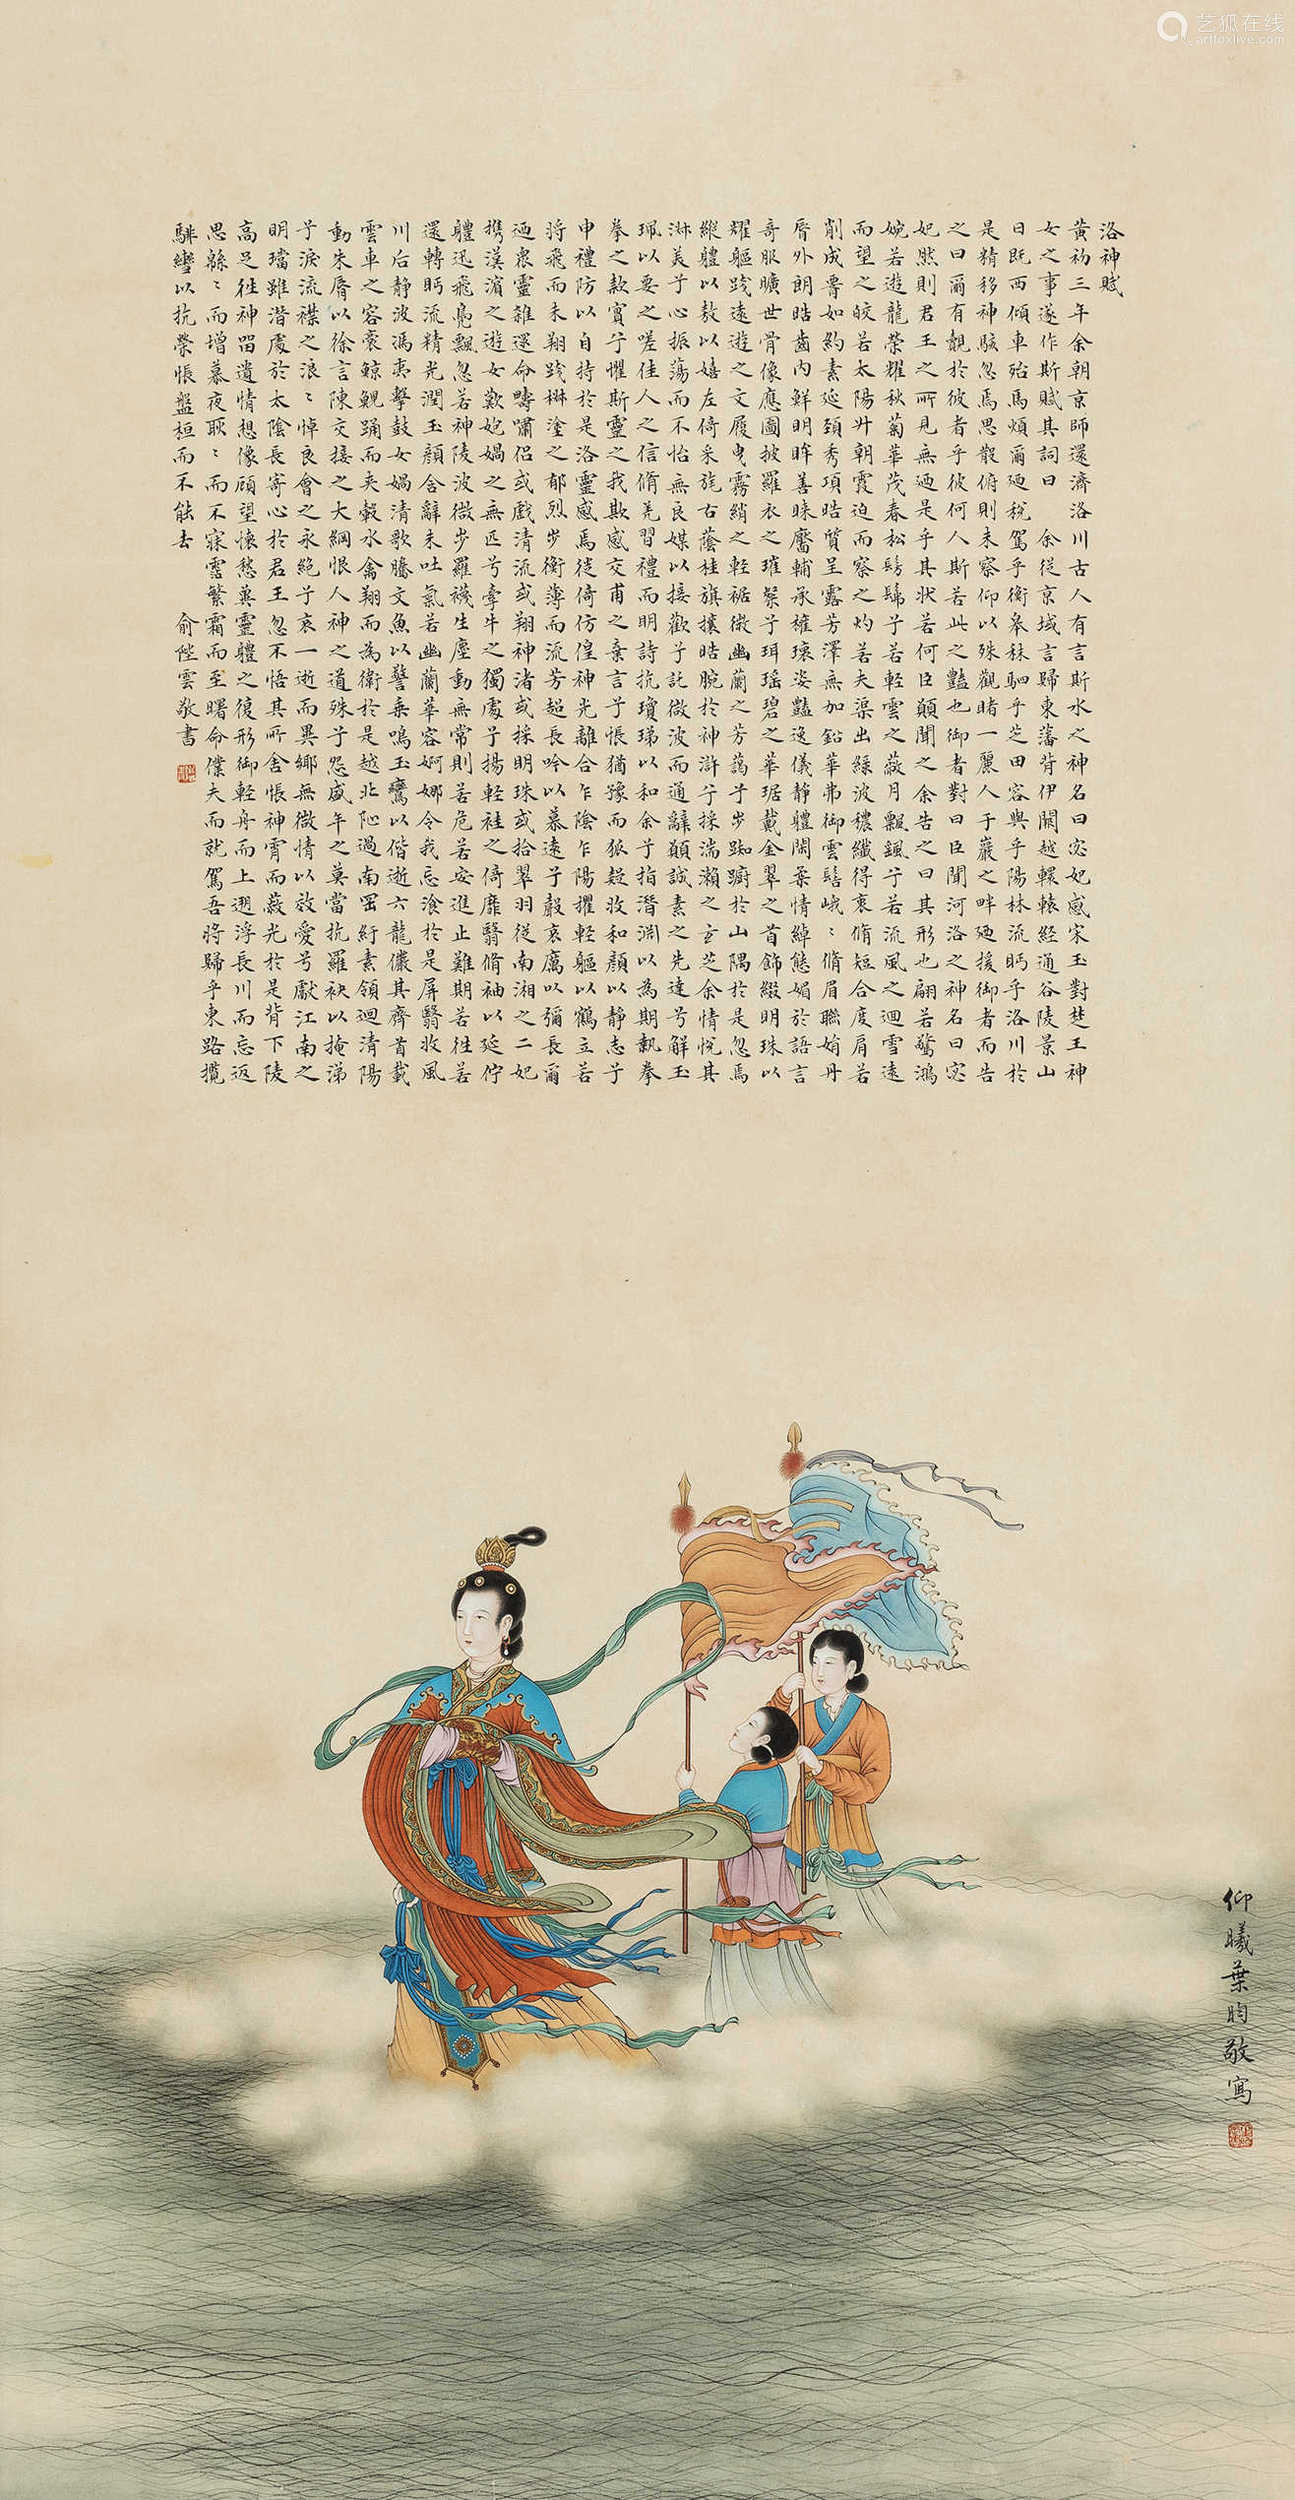 艺狐在线
artfoxlive.com
洛神賦
黃初三年余朝京師還濟洛川古人有言斯水之神名曰宓妃感宋玉對楚王神
女之事遂作斯賦其詞曰 余從京域言歸東藩背伊闕越轘轅經通谷陵景山
日既西傾車殆馬煩爾迺稅駕乎衡皋秣駟乎芝田容與乎陽林流眄乎洛川於
是精移神駭忽焉思散俯則未察仰以殊觀睹一麗人于巖之畔迺援御者而告
之曰爾有覿於彼者乎彼何人斯若此之豔也御者對曰臣聞河洛之神名曰宓
妃然則君王之所見無迺是乎其狀若何臣願聞之余告之曰其形也翩若驚鴻
婉若遊龍榮耀秋菊華茂春松髣髴兮若輕雲之蔽月飄颻兮若流風之迴雪遠
而望之皎若太陽升朝霞迫而察之灼若夫渠出綠波穠纖得衷脩短合度肩若
削成腰如約素延頸秀項皓質呈露芳澤無加鉛華弗御雲髻峨〻脩眉聯娟丹
脣外朗皓齒內鮮明眸善睞靨輔承權瓌姿豔逸儀靜體閑柔情綽態媚於語言
奇服曠世骨像應圖披羅衣之璀粲兮珥瑤碧之華琚戴金翠之首飾綴明珠以
耀軀踐遠遊之文履曳霧綃之輕裾微幽蘭之芳藹兮步踟躕於山隅於是忽焉
縱體以遨以嬉左倚采旄右蔭桂旗攘皓腕於神滸兮採湍瀨之玄芝余情悅其
淑美兮心振蕩而不怡無良媒以接歡兮託微波而通辭願誠素之先達兮解玉
珮以要之嗟佳人之信脩羌習禮而明詩抗瓊珶以和余兮指潛淵以為期執拳
拳之款實兮懼斯靈之我欺感交甫之棄言兮悵猶豫而狐疑收和顏以靜志兮
申禮防以自持於是洛靈感焉徙倚仿偟神光離合乍陰乍陽擢輕軀以鶴立若
將飛而未翔踐椒塗之郁烈步衡薄而流芳超長吟以慕遠兮聲哀厲以彌長爾
迺衆靈雜遝命疇嘯侶或戲清流或翔神渚或採明珠或拾翠羽從南湘之二妃
携漢濱之遊女歎妃媧之無匹兮牽牛之獨處兮揚輕袿之倚靡翳脩袖以延佇
體迅飛鳧飄忽若神陵波微步羅襪生塵動無常則若危若安進止難期若往若
還轉眄流精光潤玉顏含辭未吐氣若幽蘭華容婀娜令我忘湌於是屏翳收風
川后靜波馮夷擊鼓女媧清歌騰文魚以警乘鳴玉鸞以偕逝六龍儼其齊首載
雲車之容裔鯨鯢踊而夾轂水禽翔而為衛於是越北沚過南罡紆素領迴清陽
動朱脣以徐言陳交接之大綱恨人神之道殊兮怨盛年之莫當抗羅袂以掩涕
兮淚流襟之浪〻悼良會之永絕兮哀一逝而異鄉無微情以效愛兮獻江南之
明璫雖潛處於太陰長寄心於君王忽不悟其所舍悵神霄而蔽光於是背下陵
高足往神留遺情想像顧望懷愁冀靈體之復形御輕舟而上遡浮長川而忘返
思緜〻而增慕夜耿〻而不寐霑繁霜而至曙命僕夫而就駕吾將歸乎東路攬
騑轡以抗榮悵盤桓而不能去 俞陛雲敬書
仰曦葉昀敬寫